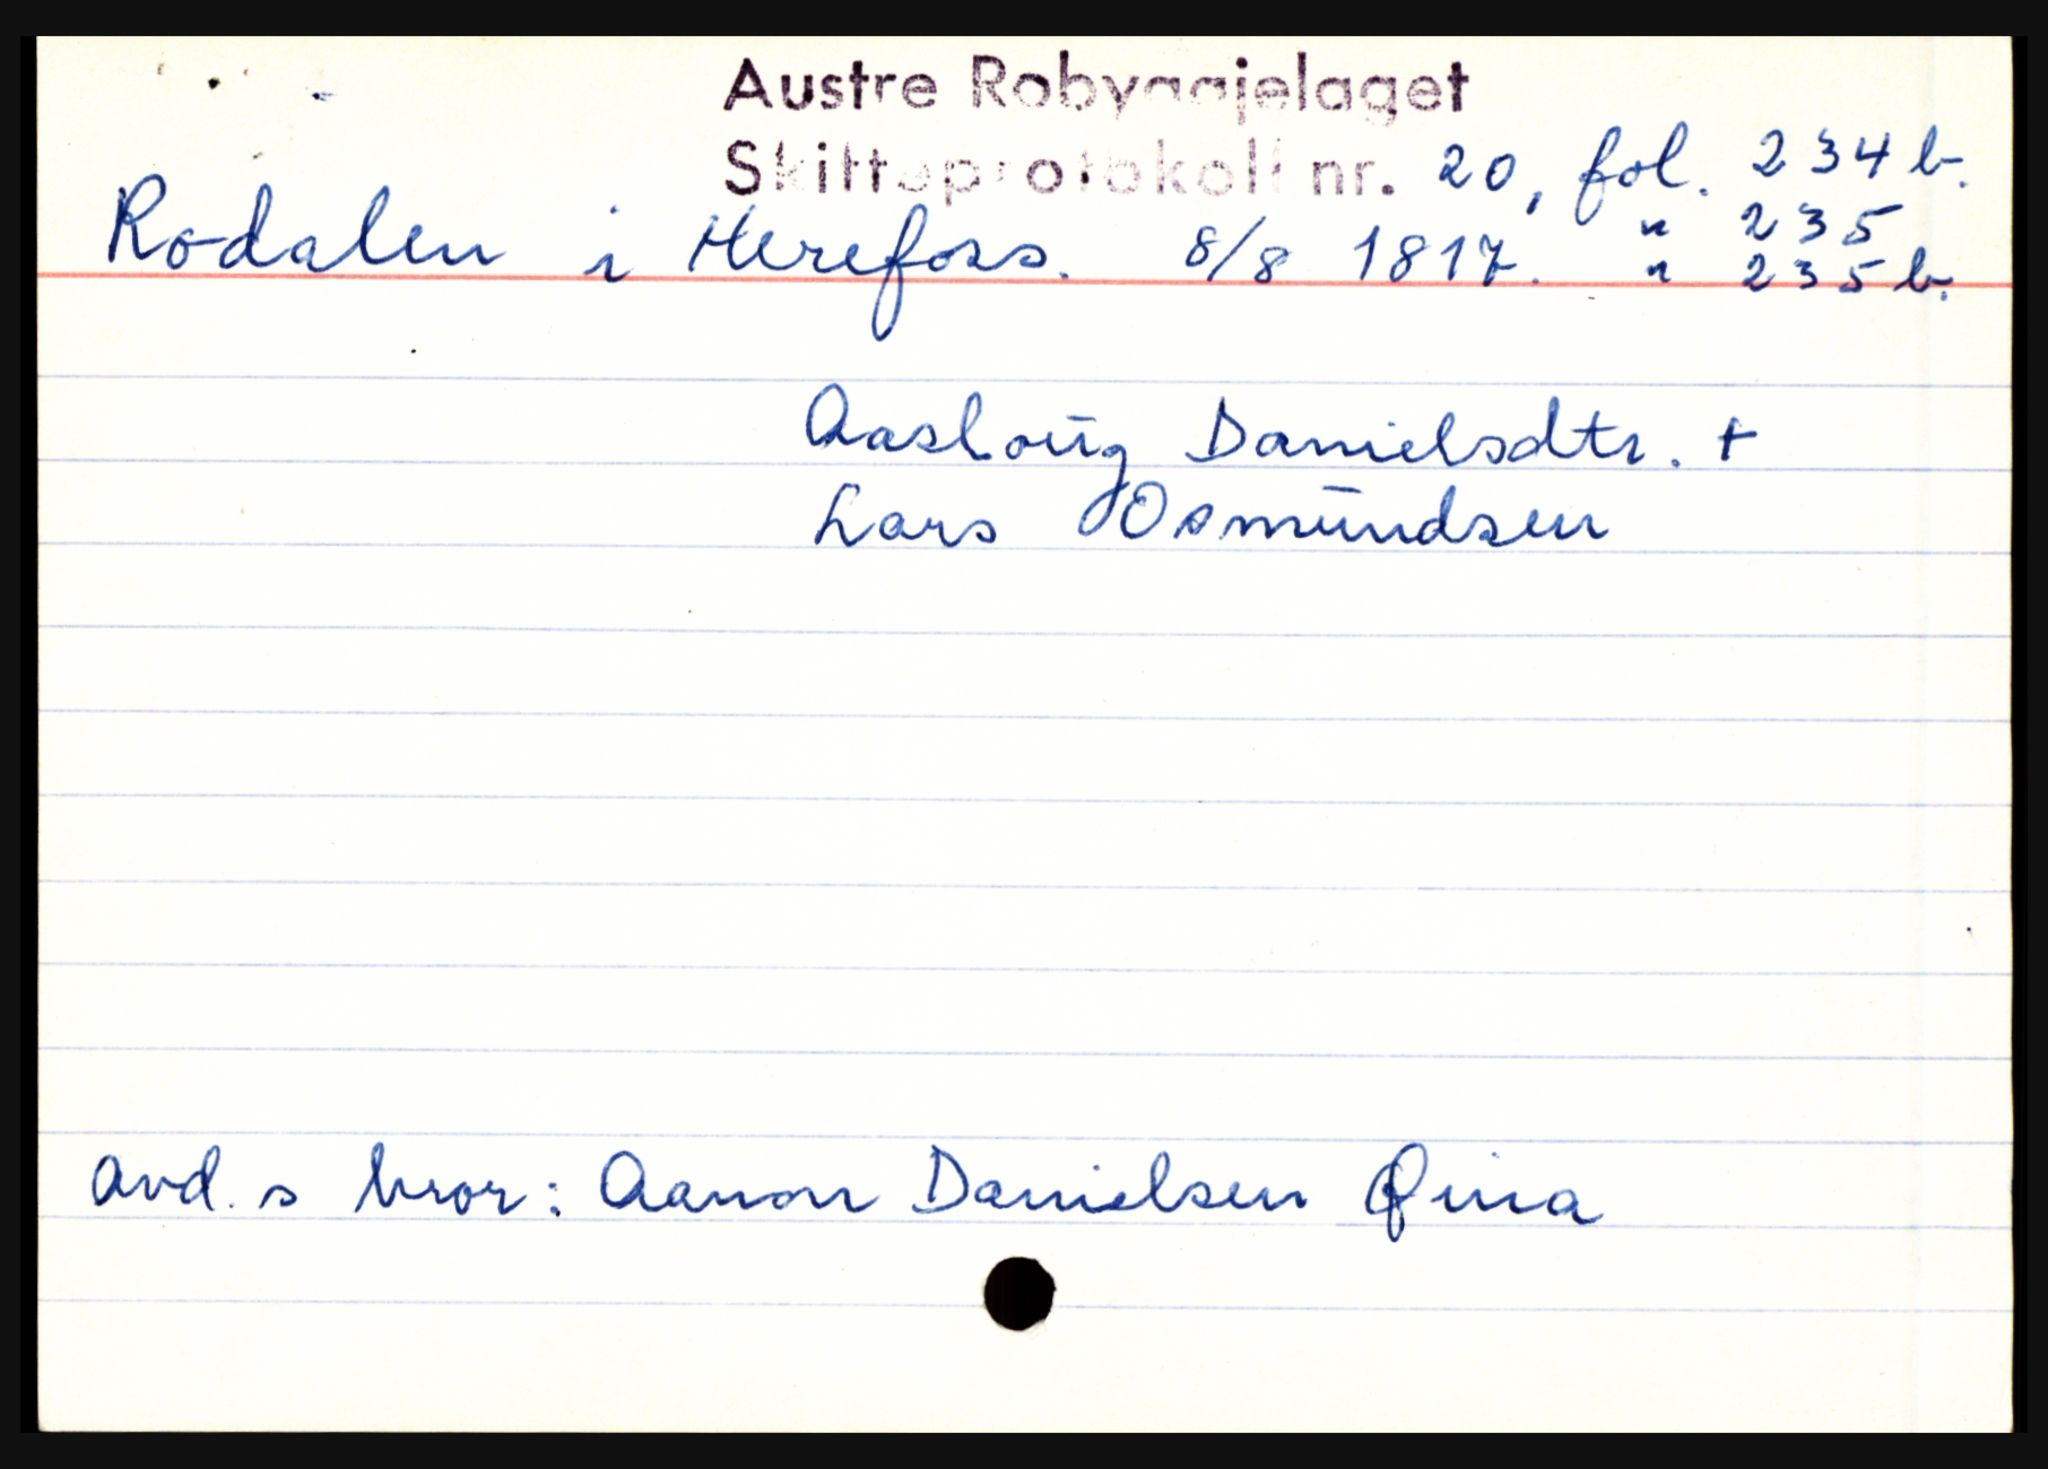 Austre Robyggjelaget
Skifteprotokoll nr. 20, fol. 234 b.
" 235
Rodalen i Herefoss. 8/8 1817. " 235 b.
Aasloug Danielsdtr. +
Lars Osmundsen
avd. s bror: Aanon Danielsen